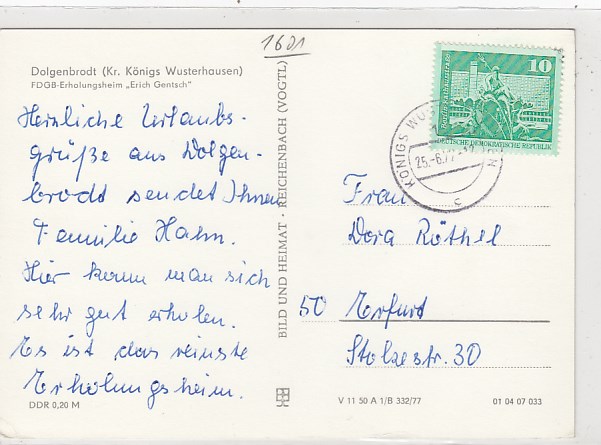 1601
Dolgenbrodt (Kr. Königs Wusterhausen)
FDGB-Erholungsheim „Erich Gentsch“
Herzliche Urlaubs-
grüße aus Dolgen-
brodt sendet Ihnen
Familie Hahn.
Hier kann man sich
sehr gut erholen.
Es ist das reinste
Erholungsheim.
DDR 0,20 M
BILD UND HEIMAT · REICHENBACH (VOGTL)
10
DEUTSCHE DEMOKRATISCHE REPUBLIK
KÖNIGS WUS
25.-6.77
c
Frau
Dora Röthel
50 Erfurt
Stolzestr. 30
V 11 50 A 1/B 332/77
01 04 07 033